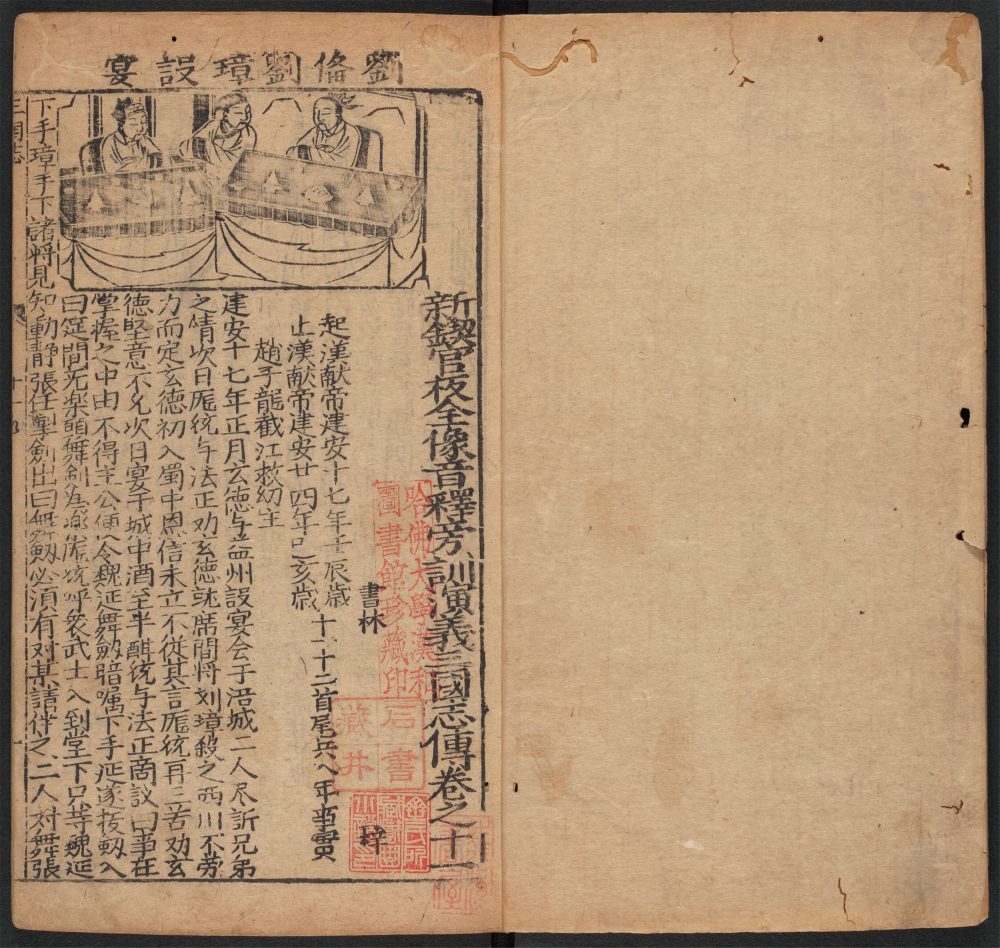 劉俻劉璋設宴
新鍥官板全像音釋旁訓演義三國志傳卷之十一
哈佛大學漢和
圖書館珍藏印
石書
藏井
書林 梓
起漢献帝建安十七年壬辰歲
止漢献帝建安廿四年己亥歲 十一十二首尾共八年事實
趙子龍截江救幼主
建安十七年正月玄德与益州設宴会于涪城二人尽訴兄弟
之情次日龐統与法正劝玄德就席間将刘璋殺之西川不劳
力而定玄德初入蜀中恩信未立不從其言龐統再三苦劝玄
德堅意不允次日宴于城中酒至半酣統与法正商議曰事在
掌握之中由不得主公便令魏延舞劔暗嘱下手延遂拔劔入
曰筵間无楽請舞劍為楽龐統呼衆武士入列堂下只等魏延
下手璋手下諸將見知動靜張任掣劍出曰舞劔必須有对某請伴之二人对舞張
三國志